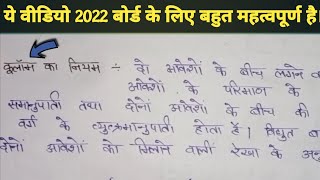 ये वीडियो 2022 बोर्ड के लिए बहुत महत्वपूर्ण है।
कूलॉम का नियम ÷ दो आवेशों के बीच लगने व
आवेशों के परिमाण के
समानुपाती तथा दोनों आवेशों के बीच की
वर्ग के व्युत्क्रमानुपाती होता है। विद्युत ब
दोनों आवेशों को मिलाने वाली रेखा के अनु